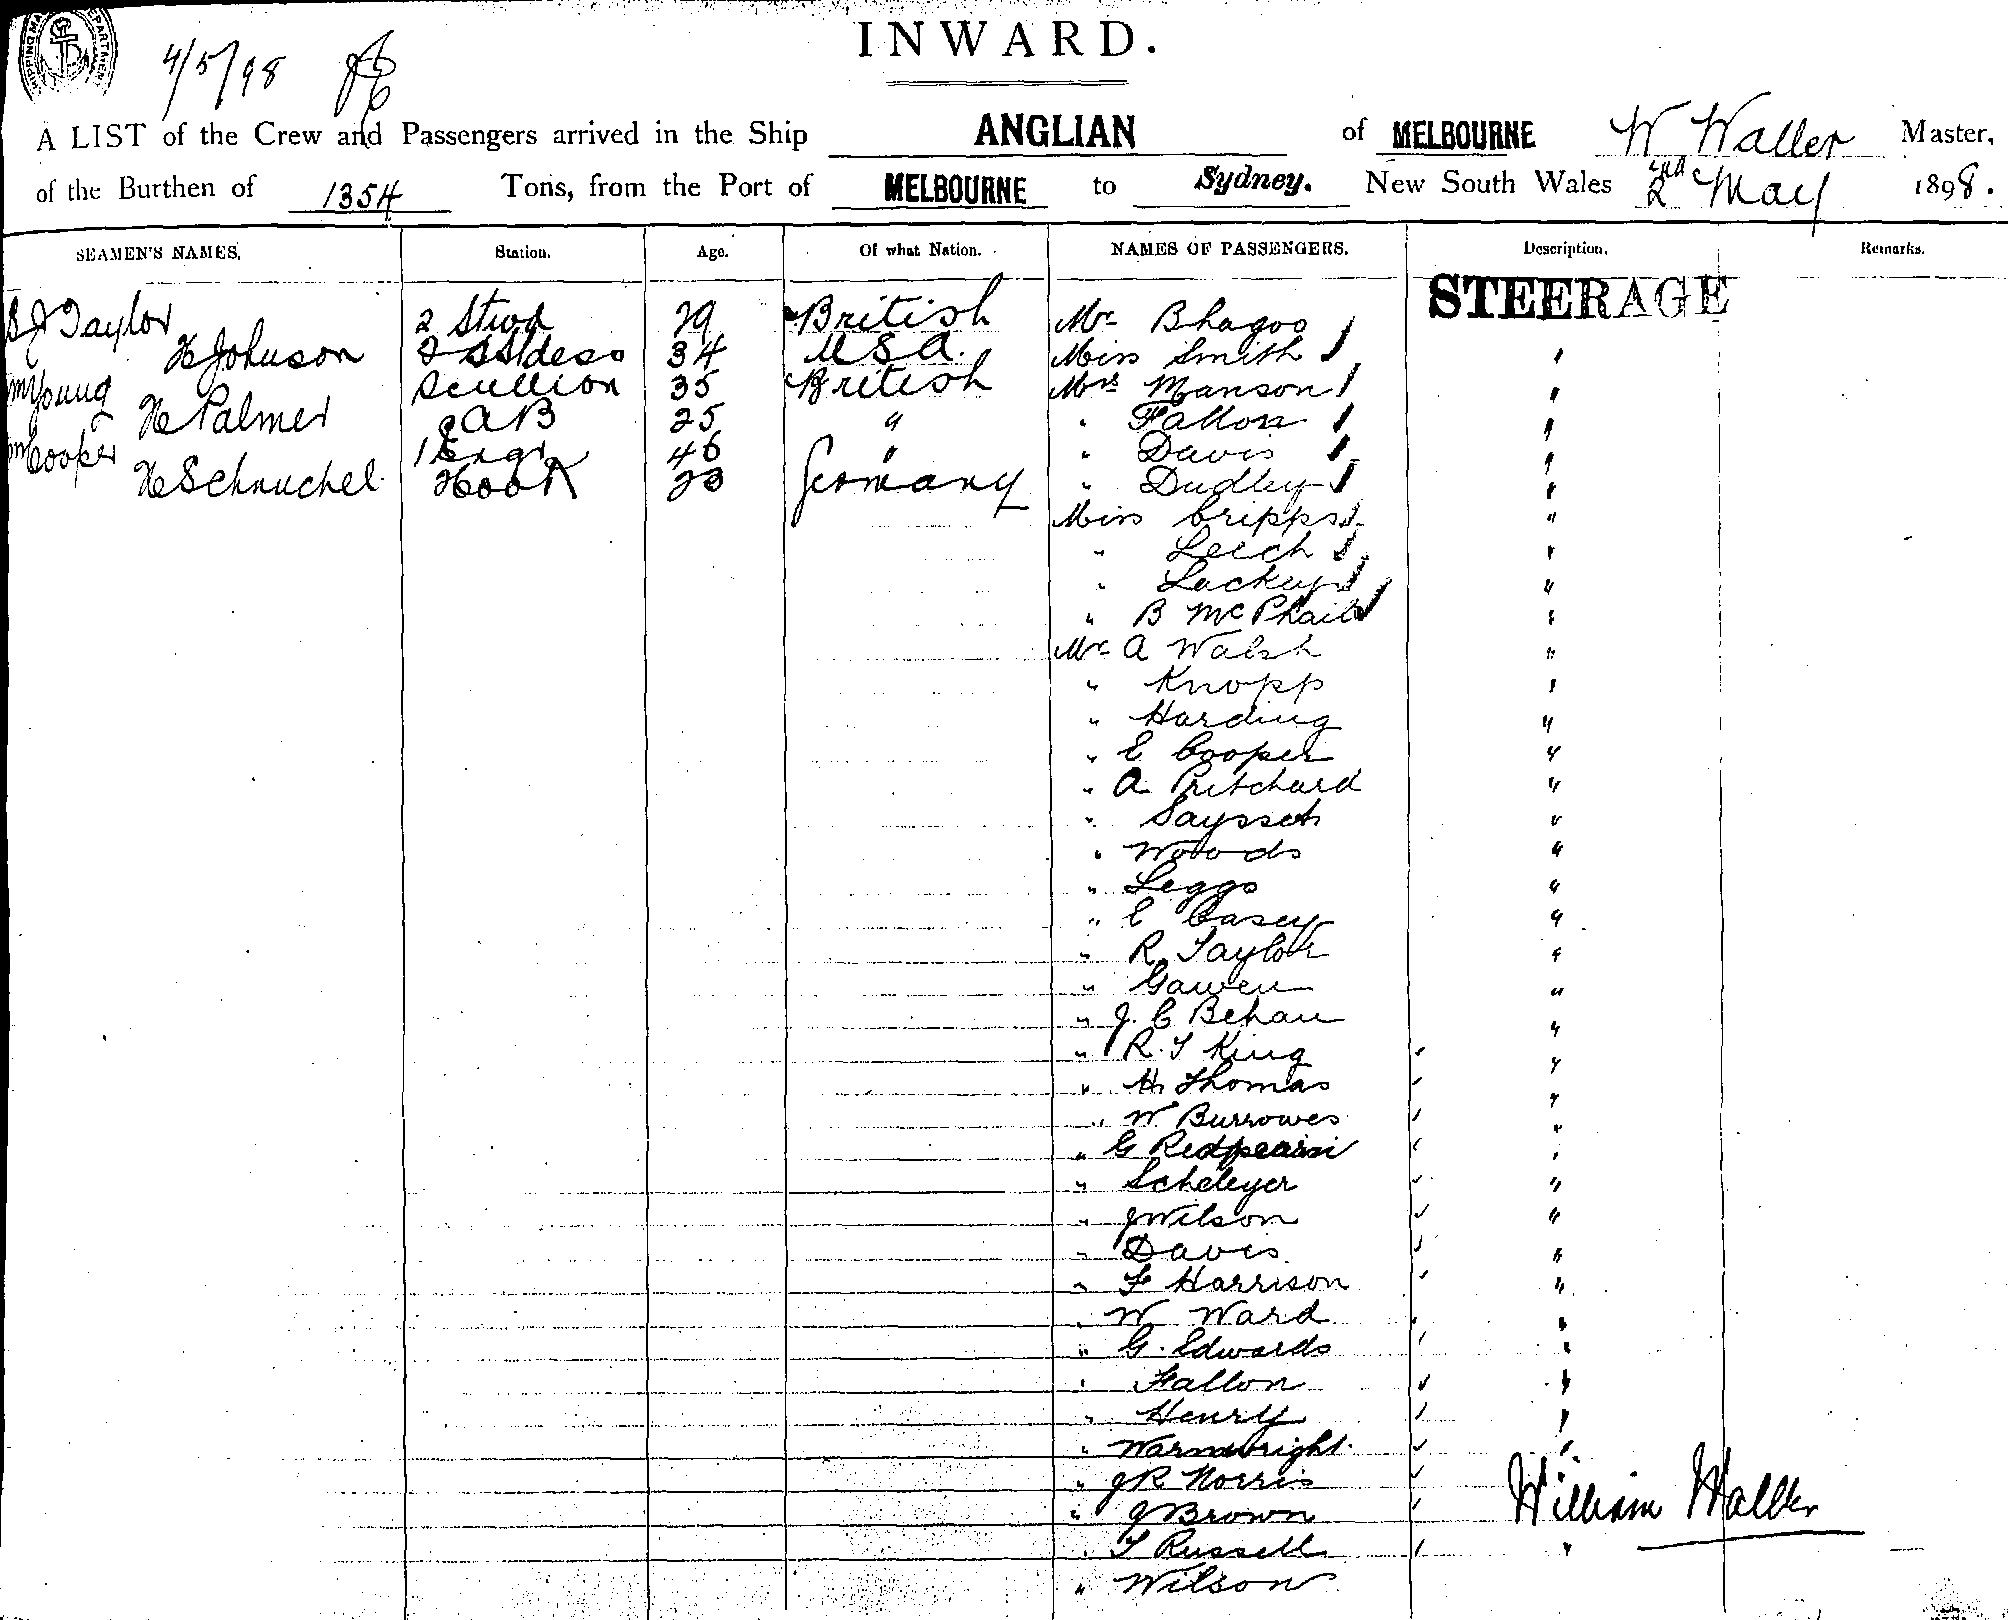 INWARD.
4/5/98
A LIST of the Crew and Passengers arrived in the Ship ANGLIAN of MELBOURNE W Waller Master,
of the Burthen of 1354 Tons, from the Port of MELBOURNE to Sydney. New South Wales 2nd May 1898.
SEAMEN'S NAMES. Station. Age. Of what Nation. NAMES OF PASSENGERS. Description. Remarks.
STEERAGE
Taylor 2 Stwd 29 British Mr Bhagoo
H Johnson 34 U S A. Miss Smith "
Young Scullion 35 British Mrs Manson "
H Palmer AB 25 " " Fallon "
Cooper 1 Engr 46 " " Davis "
H Schnuchel Cook 23 Germany " Dudley "
Miss Cripps "
" Leech "
" Lackey "
" B McPhail "
Mr A Walsh "
" Knopp "
" Harding "
" E Cooper "
" A Pritchard "
" Sayssett "
" Woods "
" Leggo "
" E Casey "
" R Taylor "
" Gawen "
" J. C Behan "
" R. T King "
" H Thomas "
" W Burrowes "
" G Redfearn "
" Scheleyer "
" J Wilson "
" Davis "
" F Harrison "
" W Ward "
" G. Edwards "
" Fallon "
" Henry "
" Warnwright "
" J R Norris "
" J Brown "
" T Russell "
" Wilson
William Waller